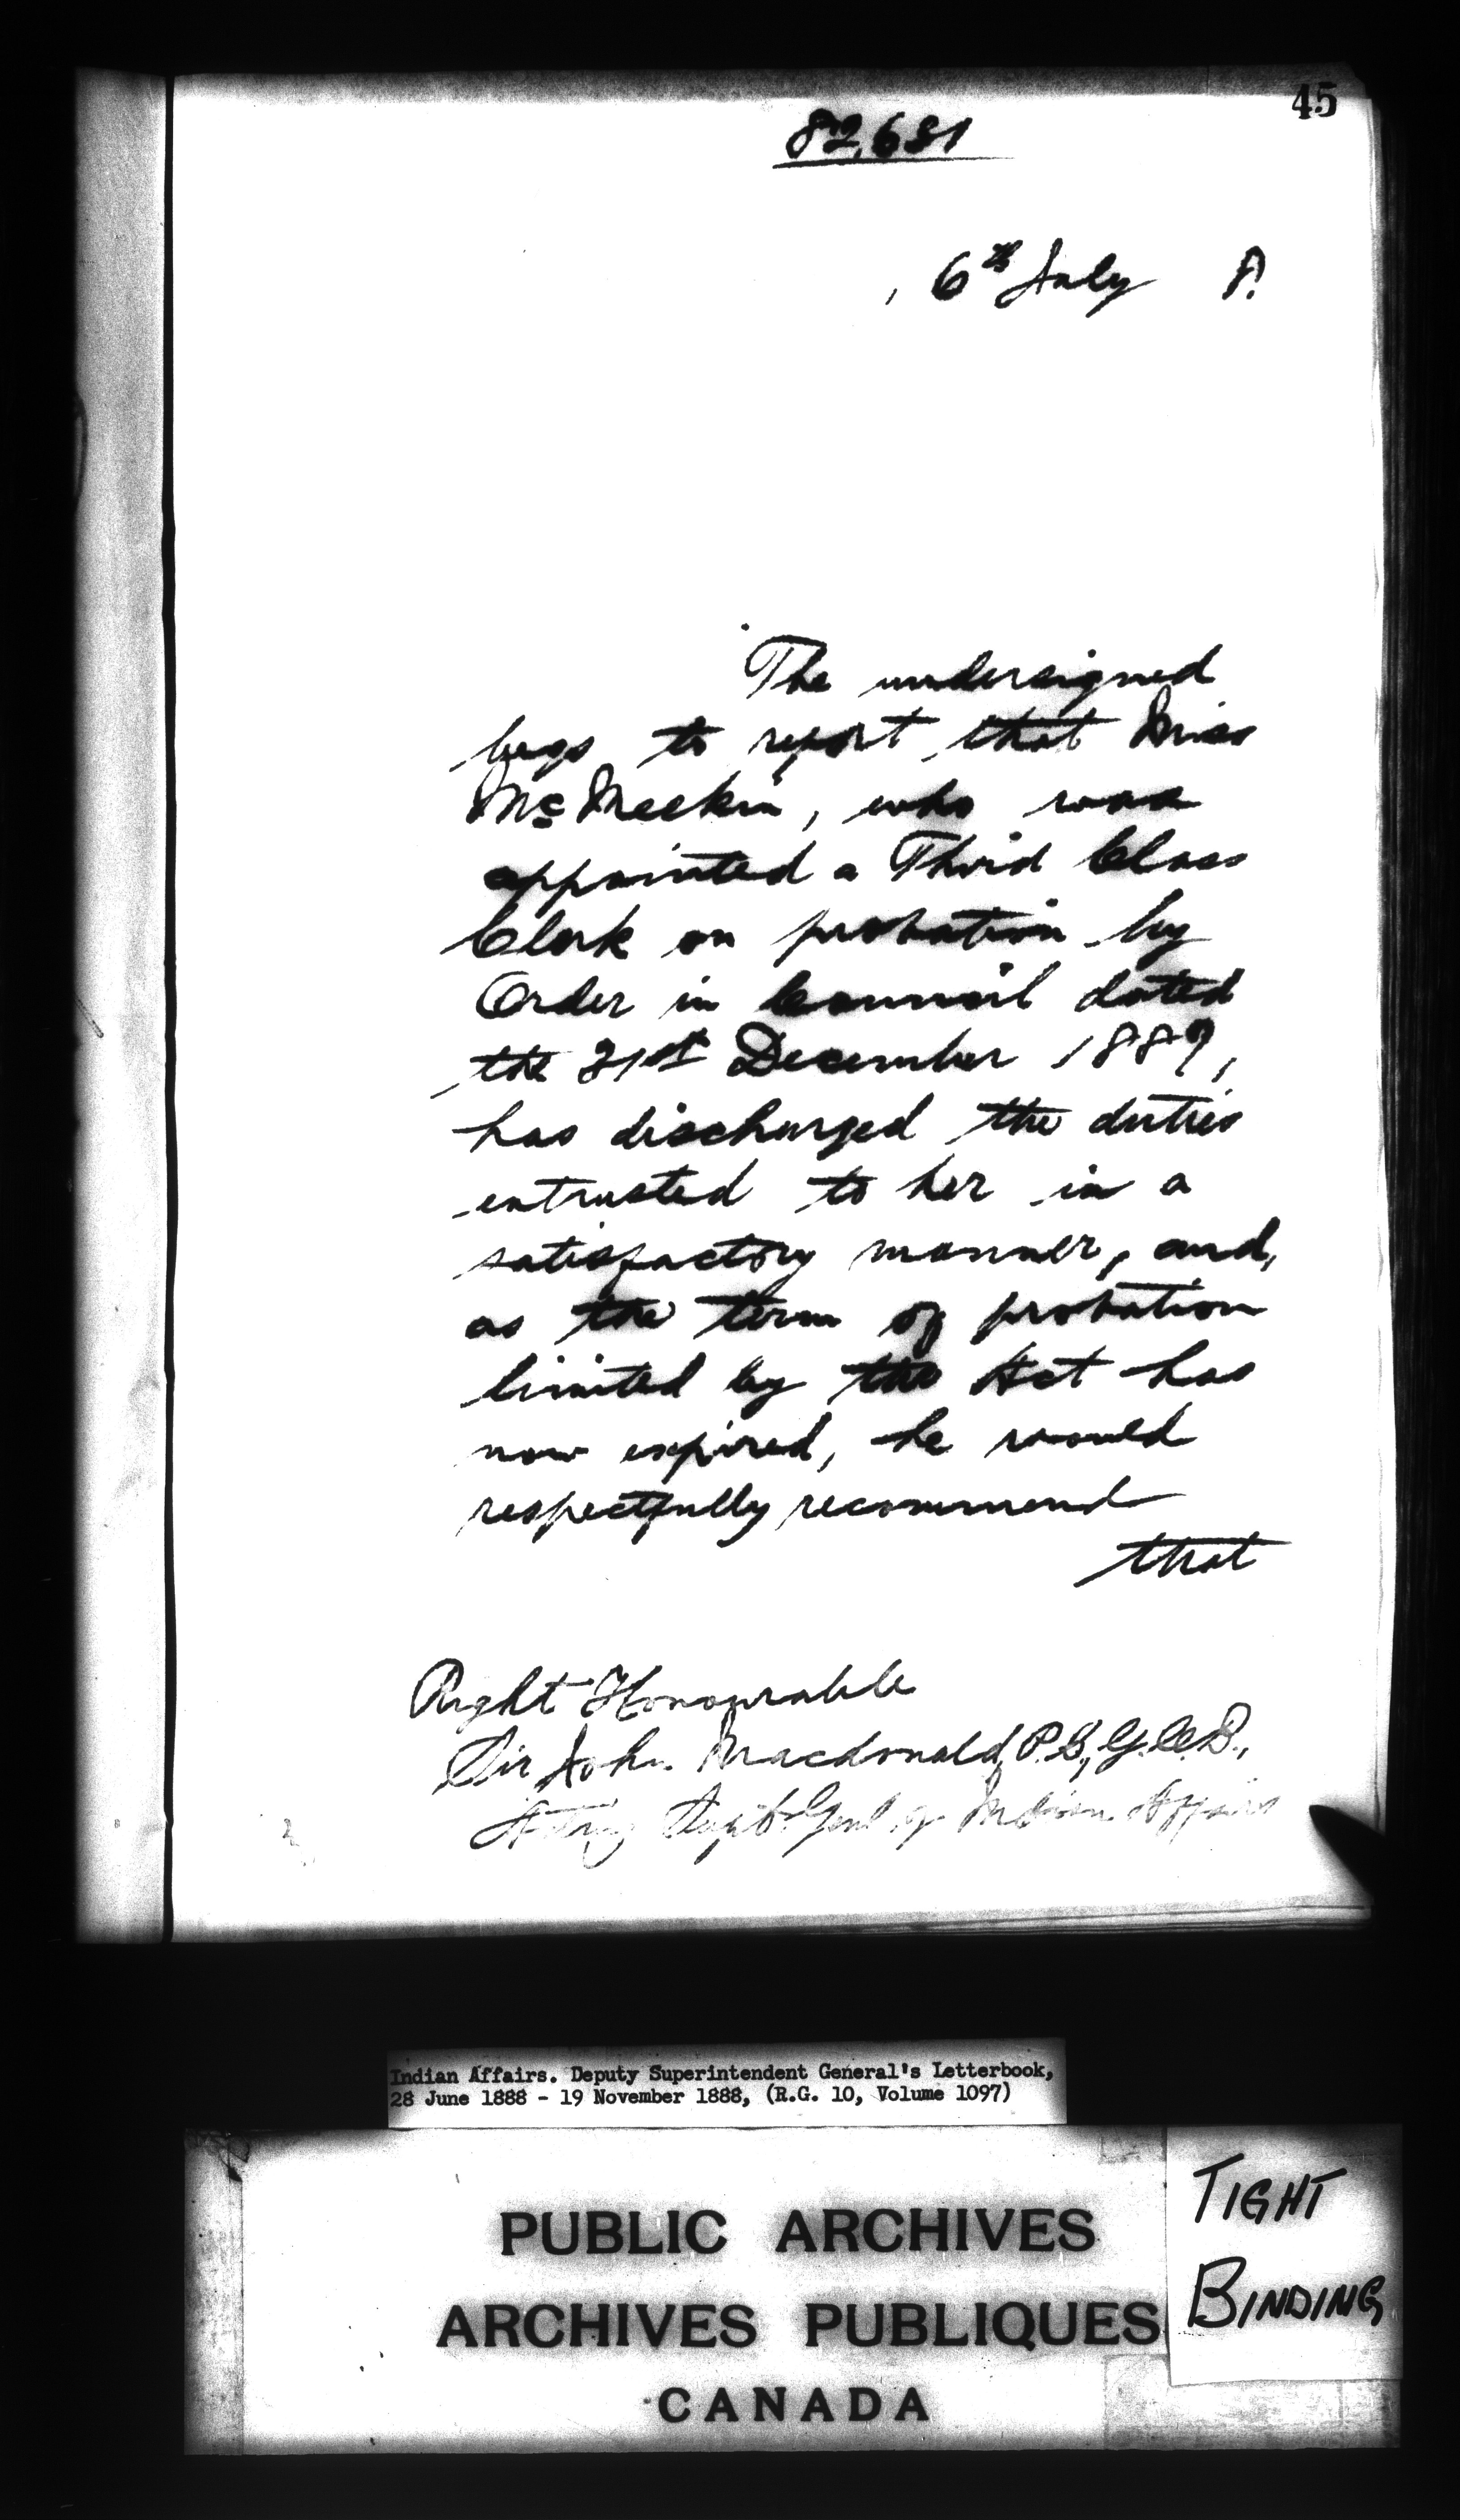 45
82,681
6th July 8.
The undersigned
begs to report that Miss
McMeekin, who was
appointed a Third Class
Clerk on probation by
Order in Council dated
the 21st December 1887,
has discharged the duties
entrusted to her in a
satisfactory manner, and,
as the term of probation
limited by the Act has
now expired, he would
respectfully recommend
that
Right Honourable
Sir John Macdonald, P.C., G.C.B.,
Acting Supt Genl of Indian Affairs
Indian Affairs. Deputy Superintendent General's Letterbook,
28 June 1888 - 19 November 1888, (R.G. 10, Volume 1097)
PUBLIC ARCHIVES
ARCHIVES PUBLIQUES
CANADA
TIGHT
BINDING